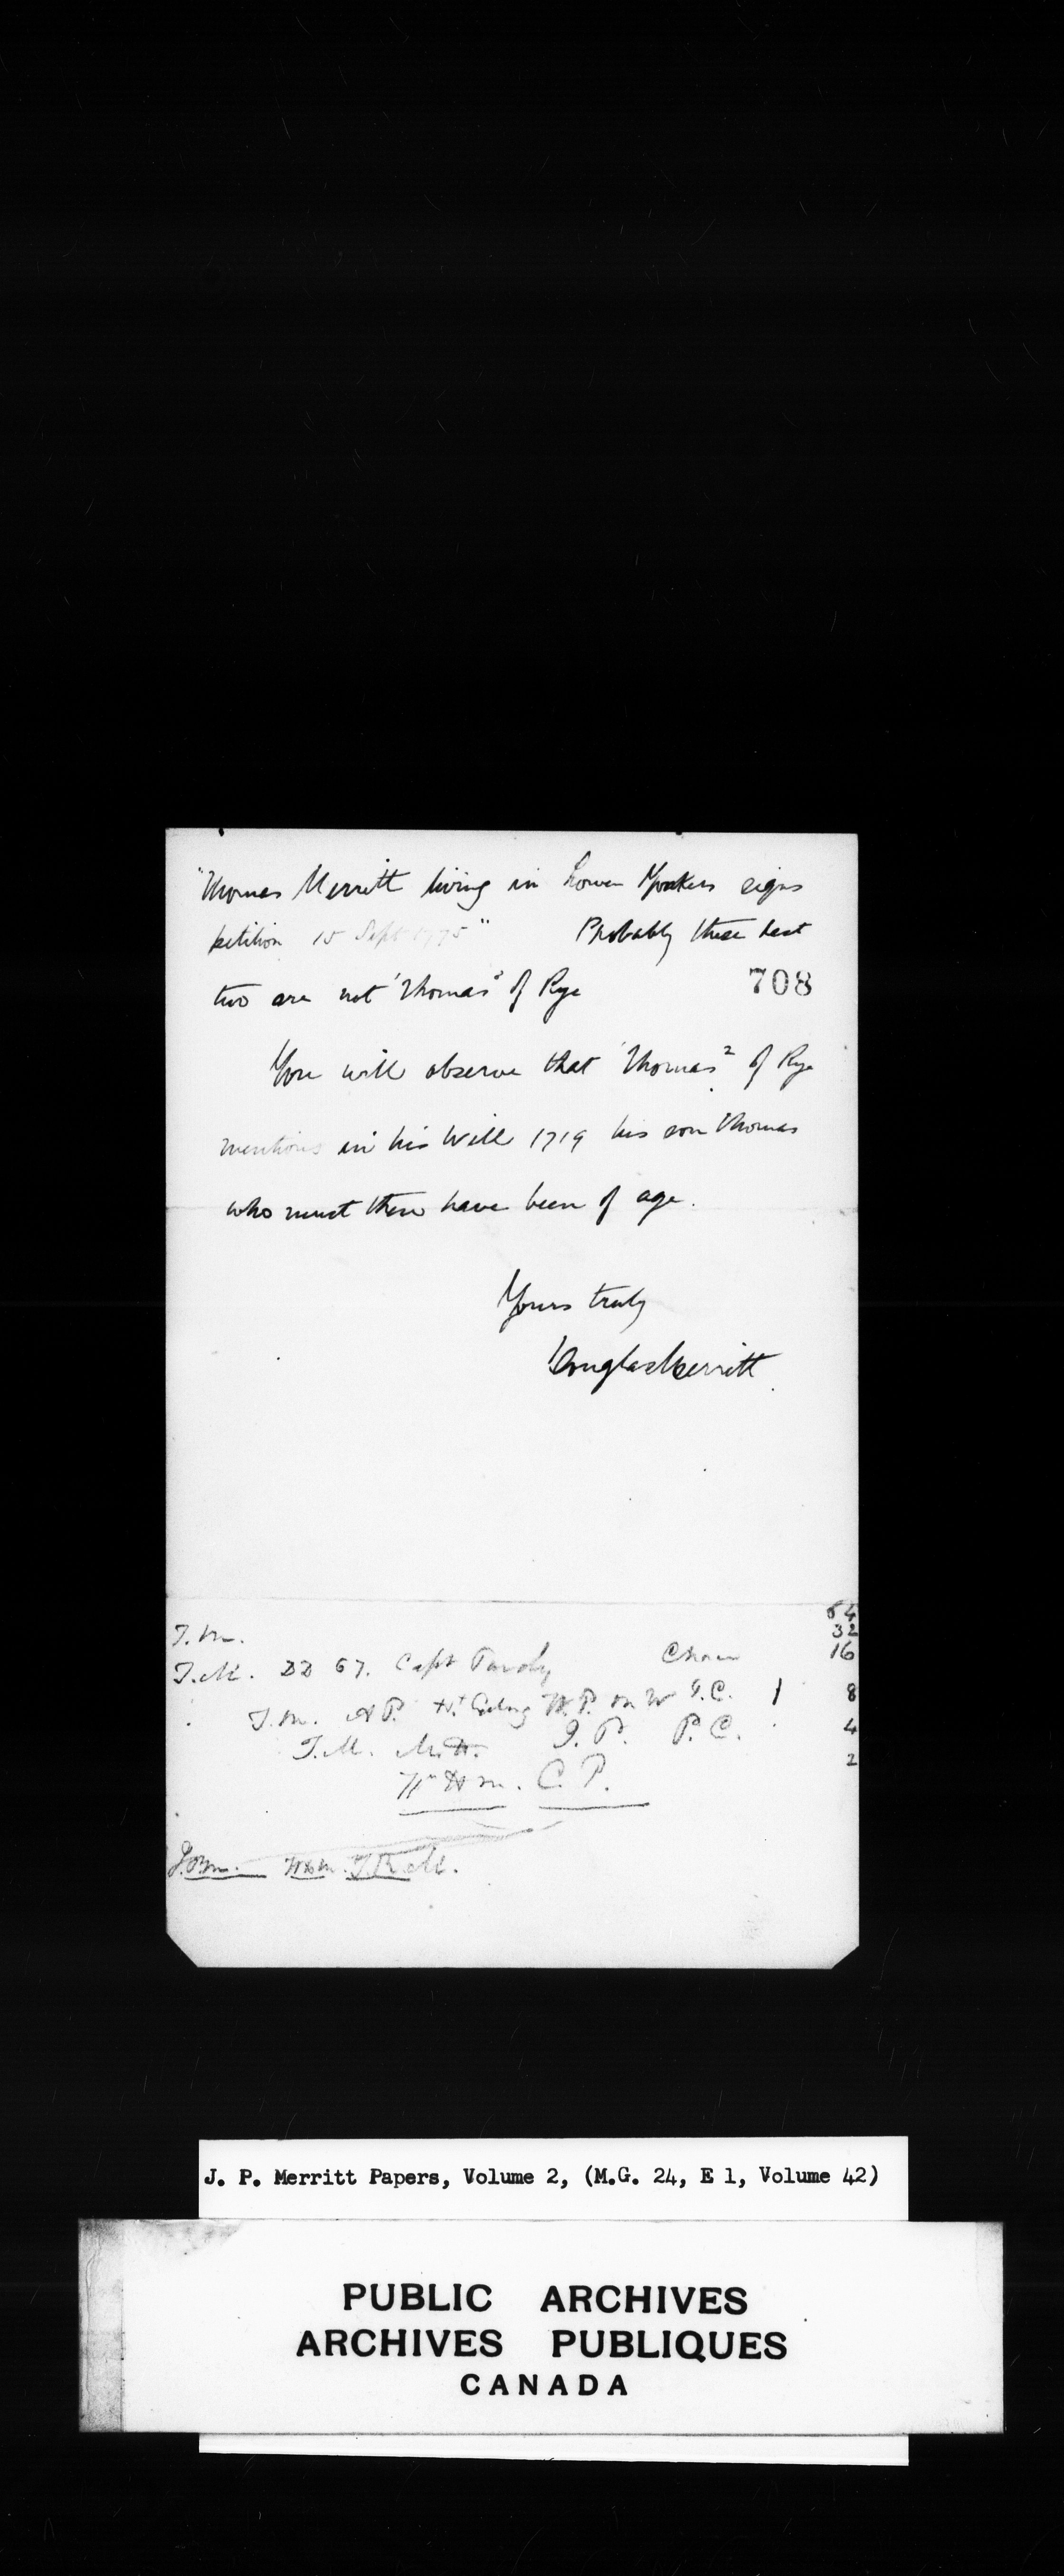 "Thomas Merritt living in Lower Yonkers signs
petition 15 Sept 1775" Probably these last
two are not 'Thomas² of Rye
708
You will observe that 'Thomas² of Rye
mentions in his Will 1719 his son Thomas
who must then have been of age.
Yours truly
Douglas Merritt
64
32
T.M.
16
T.M. DD 67. Capt
8
T.M. A P. W.P. on W G.C.
4
T.M. J. P. P. C.
2
C. P.
J. P. Merritt Papers, Volume 2, (M.G. 24, E 1, Volume 42)
PUBLIC ARCHIVES
ARCHIVES PUBLIQUES
CANADA